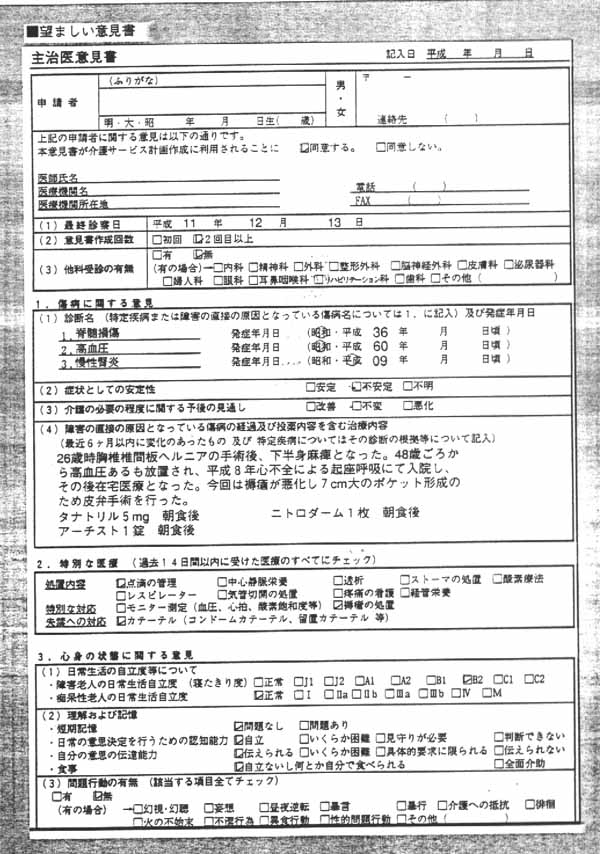 ■望ましい意見書
主治医意見書 記入日 平成 年 月 日
申請者 (ふりがな) 男・女 〒 ー
明・大・昭 年 月 日生( 歳) 連絡先 ( )
上記の申請者に関する意見は以下の通りです。
本意見書が介護サービス計画作成に利用されることに ☑同意する。 □同意しない。
医師氏名
医療機関名 電話 ( )
医療機関所在地 FAX ( )
(1) 最終診察日 平成 11 年 12 月 13 日
(2) 意見書作成回数 □初回 ☑2回目以上
(3) 他科受診の有無 □有 ☑無
(有の場合)→□内科 □精神科 □外科 □整形外科 □脳神経外科 □皮膚科 □泌尿器科
□婦人科 □眼科 □耳鼻咽喉科 □リハビリテーション科 □歯科 □その他( )
1. 傷病に関する意見
(1) 診断名 (特定疾病または障害の直接の原因となっている傷病名については1. に記入) 及び発症年月日
1. 脊髄損傷 発症年月日 (昭和・平成 36 年 月 日頃)
2. 高血圧 発症年月日 (昭和・平成 60 年 月 日頃)
3. 慢性腎炎 発症年月日 (昭和・平成 09 年 月 日頃)
(2) 症状としての安定性 □安定 ☑不安定 □不明
(3) 介護の必要の程度に関する予後の見通し □改善 ☑不変 □悪化
(4) 障害の直接の原因となっている傷病の経過及び投薬内容を含む治療内容
(最近6ヶ月以内に変化のあったもの 及び 特定疾病についてはその診断の根拠等について記入)
26歳時胸椎椎間板ヘルニアの手術後、下半身麻痺となった。48歳ごろか
ら高血圧あるも放置され、平成8年心不全による起座呼吸にて入院し、
その後在宅医療となった。今回は褥瘡が悪化し7cm大のポケット形成の
ため皮弁手術を行った。
タナトリル5mg 朝食後 ニトロダーム1枚 朝食後
アーチスト1錠 朝食後
2. 特別な医療 (過去14日間以内に受けた医療のすべてにチェック)
処置内容 ☑点滴の管理 □中心静脈栄養 □透析 □ストーマの処置 □酸素療法
□レスピレーター □気管切開の処置 □疼痛の看護 □経管栄養
特別な対応 □モニター測定(血圧、心拍、酸素飽和度等) ☑褥瘡の処置
失禁への対応 ☑カテーテル (コンドームカテーテル、留置カテーテル 等)
3. 心身の状態に関する意見
(1) 日常生活の自立度等について
・障害老人の日常生活自立度 (寝たきり度) □正常 □J1 □J2 □A1 □A2 □B1 ☑B2 □C1 □C2
・痴呆性老人の日常生活自立度 ☑正常 □Ⅰ □Ⅱa □Ⅱb □Ⅲa □Ⅲb □Ⅳ □M
(2) 理解および記憶
・短期記憶 ☑問題なし □問題あり
・日常の意思決定を行うための認知能力 ☑自立 □いくらか困難 □見守りが必要 □判断できない
・自分の意思の伝達能力 ☑伝えられる □いくらか困難 □具体的要求に限られる □伝えられない
・食事 ☑自立ないし何とか自分で食べられる □全面介助
(3) 問題行動の有無 (該当する項目全てチェック)
□有 ☑無
(有の場合) →□幻視・幻聴 □妄想 □昼夜逆転 □暴言 □暴行 □介護への抵抗 □徘徊
□火の不始末 □不潔行為 □異食行動 □性的問題行動 □その他( )